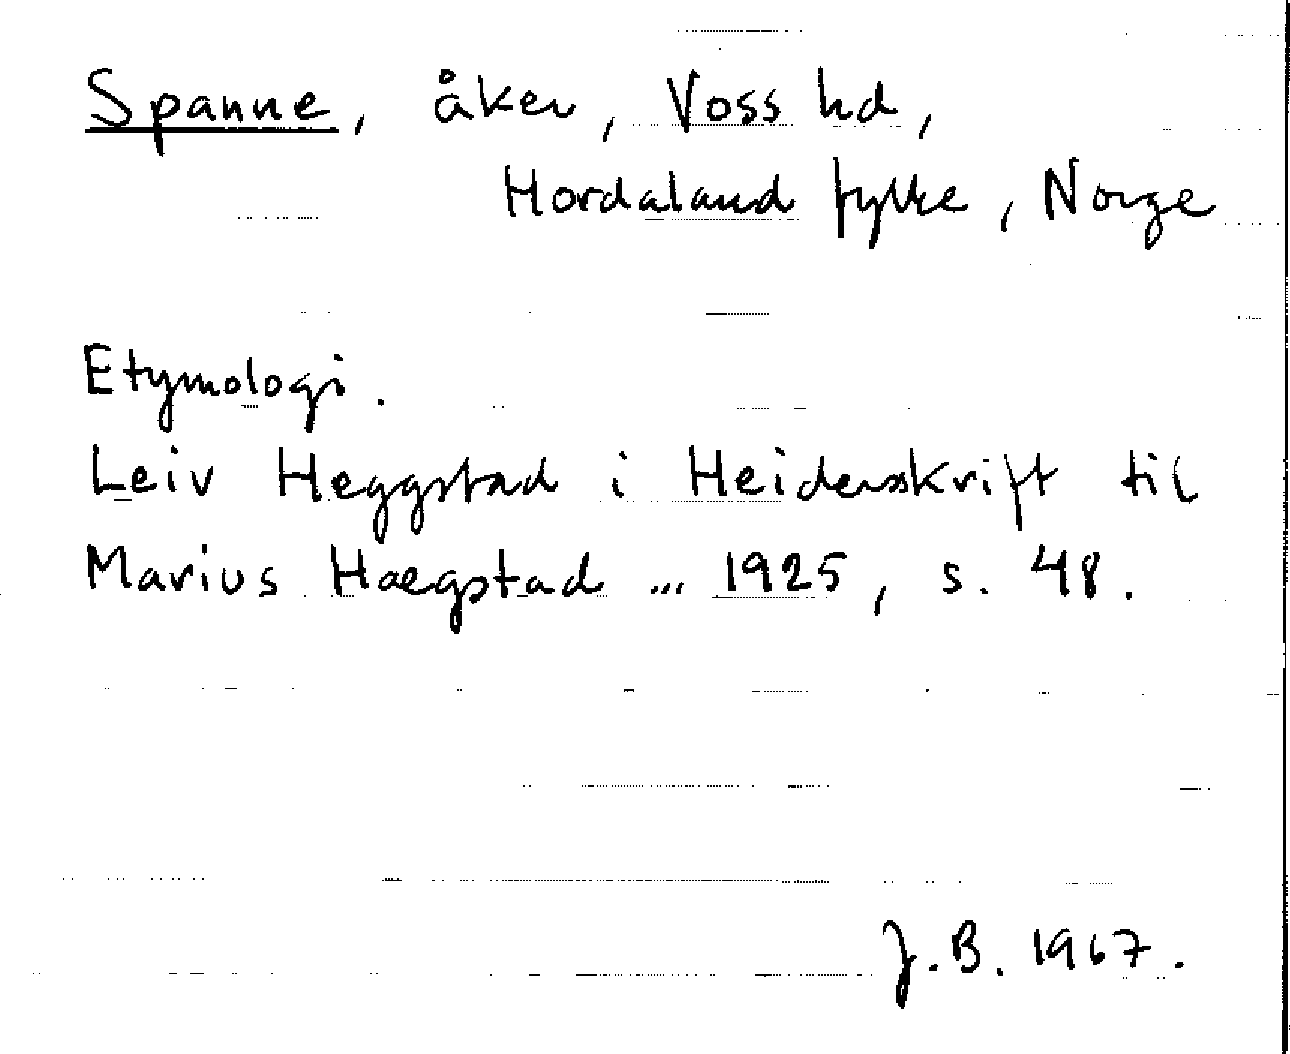 Spanne, åker, Voss hd,
Hordaland fylke, Norge
Etymologi.
Leiv Heggstad i Heidersskrift til
Marius Hægstad ... 1925, s. 48.
J.B. 1967.